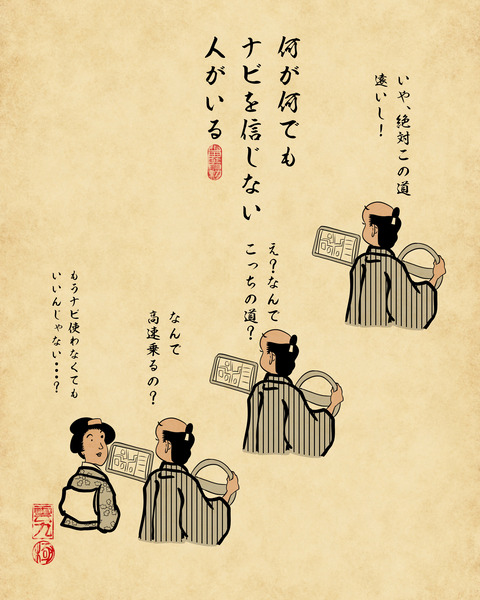 何が何でも
ナビを信じない
人がいる
いや、絶対この道
遠いし!
え?なんで
こっちの道?
なんで
高速乗るの?
もうナビ使わなくても
いいんじゃない・・・?